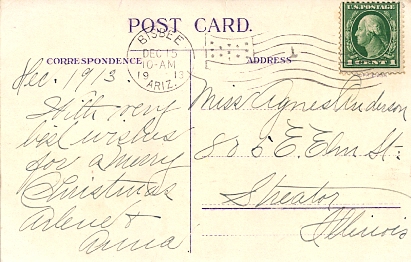 POST CARD.
CORRESPONDENCE
ADDRESS
BISBEE
DEC 15
10-AM
1913
ARIZ.
U.S. POSTAGE
1 CENT 1
Dec. 1913
With very
best wishes
for a merry
Christmas
Arlene &
Anna
Miss Agnes Anderson
805 E. Elm St.
Streator
Illinois